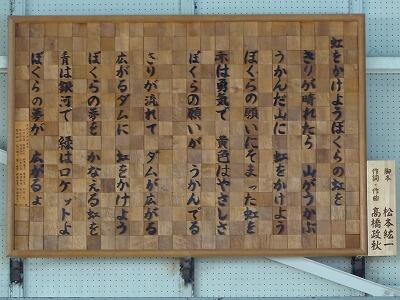 虹をかけようぼくらの虹を
きりが晴れたら　山がうかぶ
うかんだ山に　虹をかけよう
ぼくらの願いにそまった虹を
赤は勇気で　黄色はやさしさ
ぼくらの願いが　うかんでる
きりが流れて　ダムが広がる
広がるダムに　虹をかけよう
ぼくらの夢を　かなえる虹を
青は銀河で　緑はロケットよ
ぼくらの夢が　広がるよ
脚本　松本紘一
作詞・作曲　高橋政秋